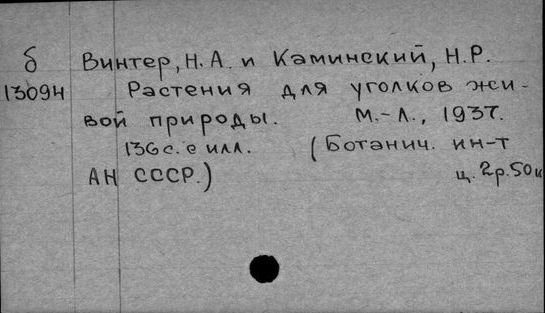 б Винтер, Н. А. и Каминский, Н.Р.
13094 Растения для уголков жи-
вой природы. М.-Л., 1937.
136 с. с илл. (Ботанич. ин-т
АН СССР.) ц. 2р.50к